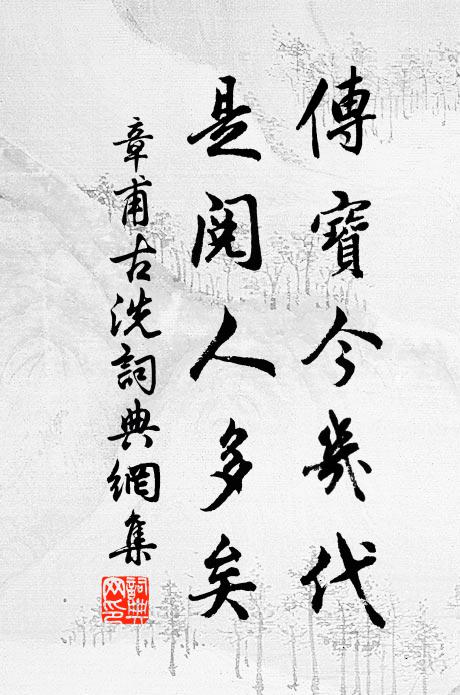 傳寶今幾代
是閱人多矣
章甫古洗詞典網集
詞典
网印